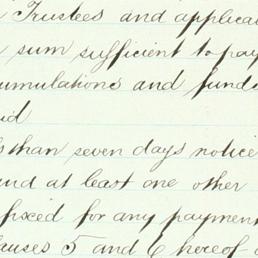 Trustees and applica
sum sufficient to pay
umulations and funds
id
s than seven days notice
and at least one other
fixed for any payment
auses 5 and 6 hereof